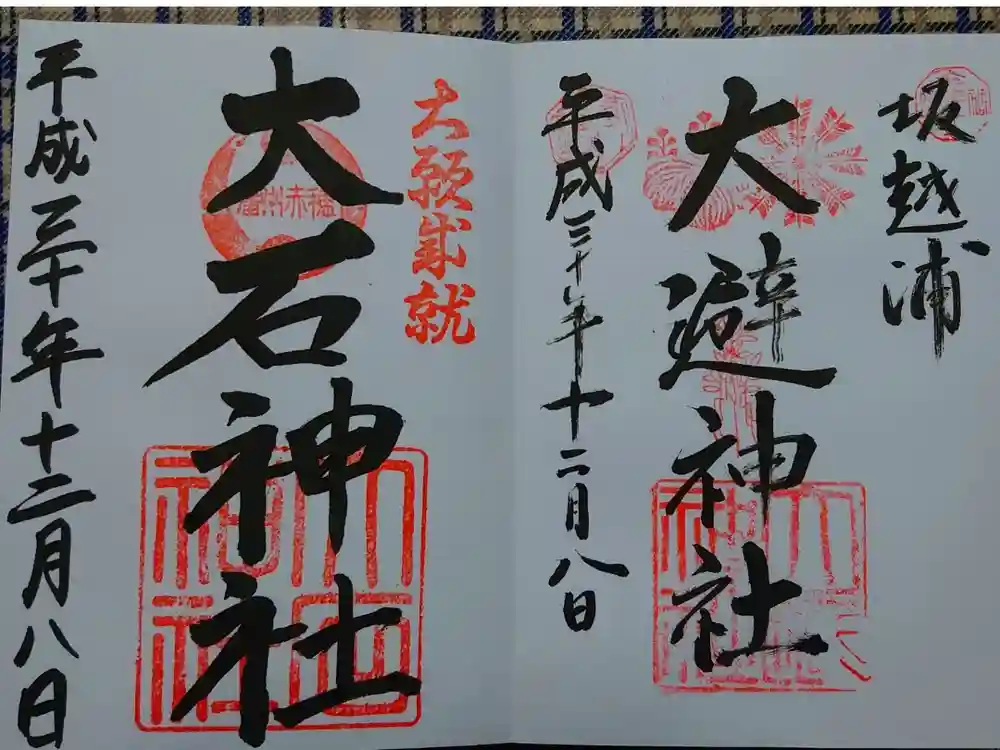 坂越浦
大避神社
平成三十年十二月八日
大願成就
播州赤穂
大石神社
大石神社
平成三十年十二月八日